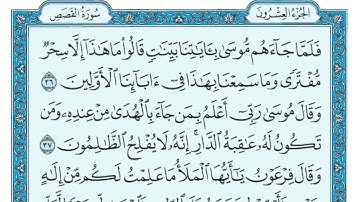 الجُزْءُ العِشْرُونَ سُورَةُ القَصَصِ
فَلَمَّا جَآءَهُم مُّوسَىٰ بِـَٔايَٰتِنَا بَيِّنَٰتٍ قَالُوا۟ مَا هَٰذَآ إِلَّا سِحْرٌ
مُّفْتَرًى وَمَا سَمِعْنَا بِهَٰذَا فِىٓ ءَابَآئِنَا ٱلْأَوَّلِينَ ٣٦
وَقَالَ مُوسَىٰ رَبِّىٓ أَعْلَمُ بِمَن جَآءَ بِٱلْهُدَىٰ مِنْ عِندِهِۦ وَمَن
تَكُونُ لَهُۥ عَٰقِبَةُ ٱلدَّارِ إِنَّهُۥ لَا يُفْلِحُ ٱلظَّٰلِمُونَ ٣٧
وَقَالَ فِرْعَوْنُ يَٰٓأَيُّهَا ٱلْمَلَأُ مَا عَلِمْتُ لَكُم مِّنْ إِلَٰهٍ